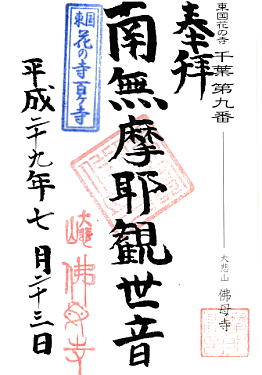 東国花の寺 千葉第九番
大悲山 佛母寺
奉拝
南無摩耶観世音
東国
花の寺百ヶ寺
佛母寺
平成二十九年七月二十三日